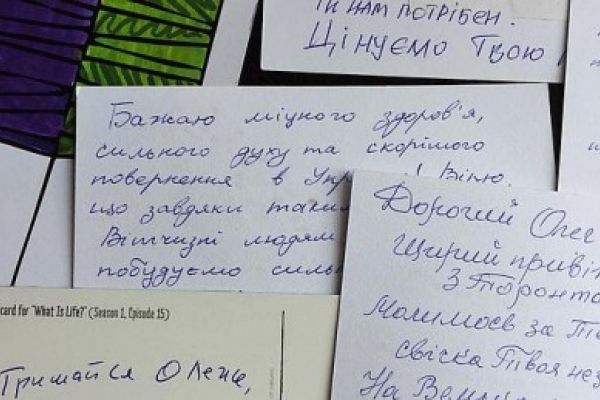 ТИ НАМ ПОТРІБЕН.
ЦІНУЄМО ТВОЮ
Бажаю міцного здоров'я,
сильного духу та скорішого
повернення в Вірю,
що завдяки
Вітчизні людям
побудуємо
Дорогий Оле
Щирий привіт
З Торонто
Молимось за
свіска Твоя
На
card for "What Is Life?" (Season 1, Episode 15)
Тримайся Олеже,